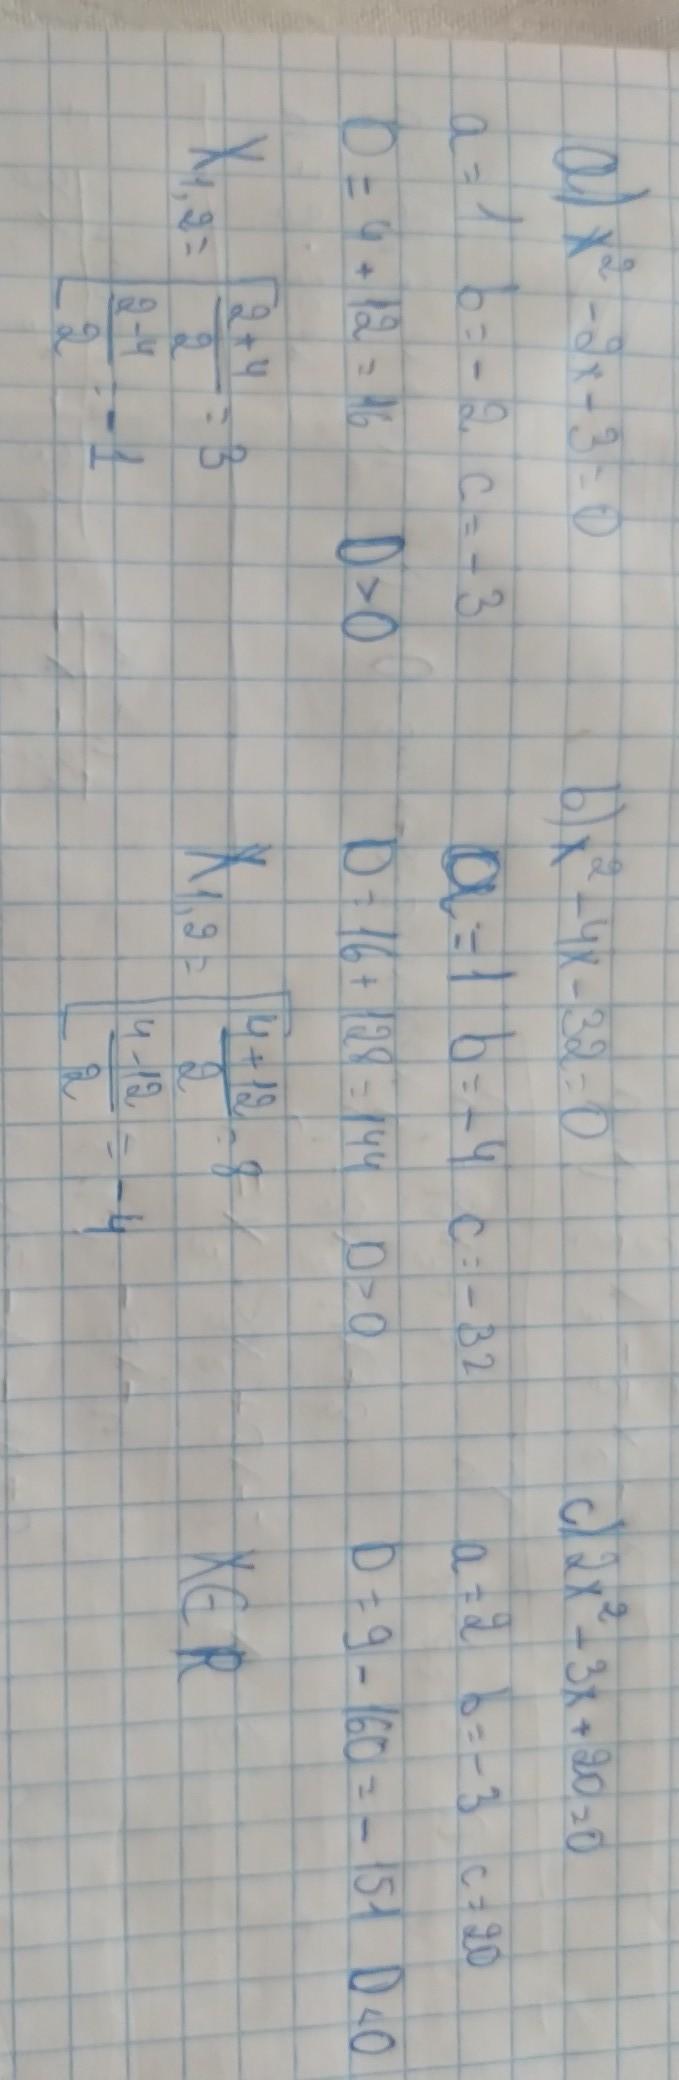 a) x² - 2x - 3 = 0
a = 1 b = - 2 c = - 3
D = 4 + 12 = 16 D > 0
X₁,₂ = [ (2+4)/2 = 3
(2-4)/2 = -1
b) x² - 4x - 32 = 0
a = 1 b = -4 c = - 32
D = 16 + 128 = 144 D > 0
X₁,₂ = [ (4+12)/2 = 8
(4-12)/2 = -4
c) 2x² - 3x + 20 = 0
a = 2 b = -3 c = 20
D = 9 - 160 = - 151 D < 0
X ∈ R